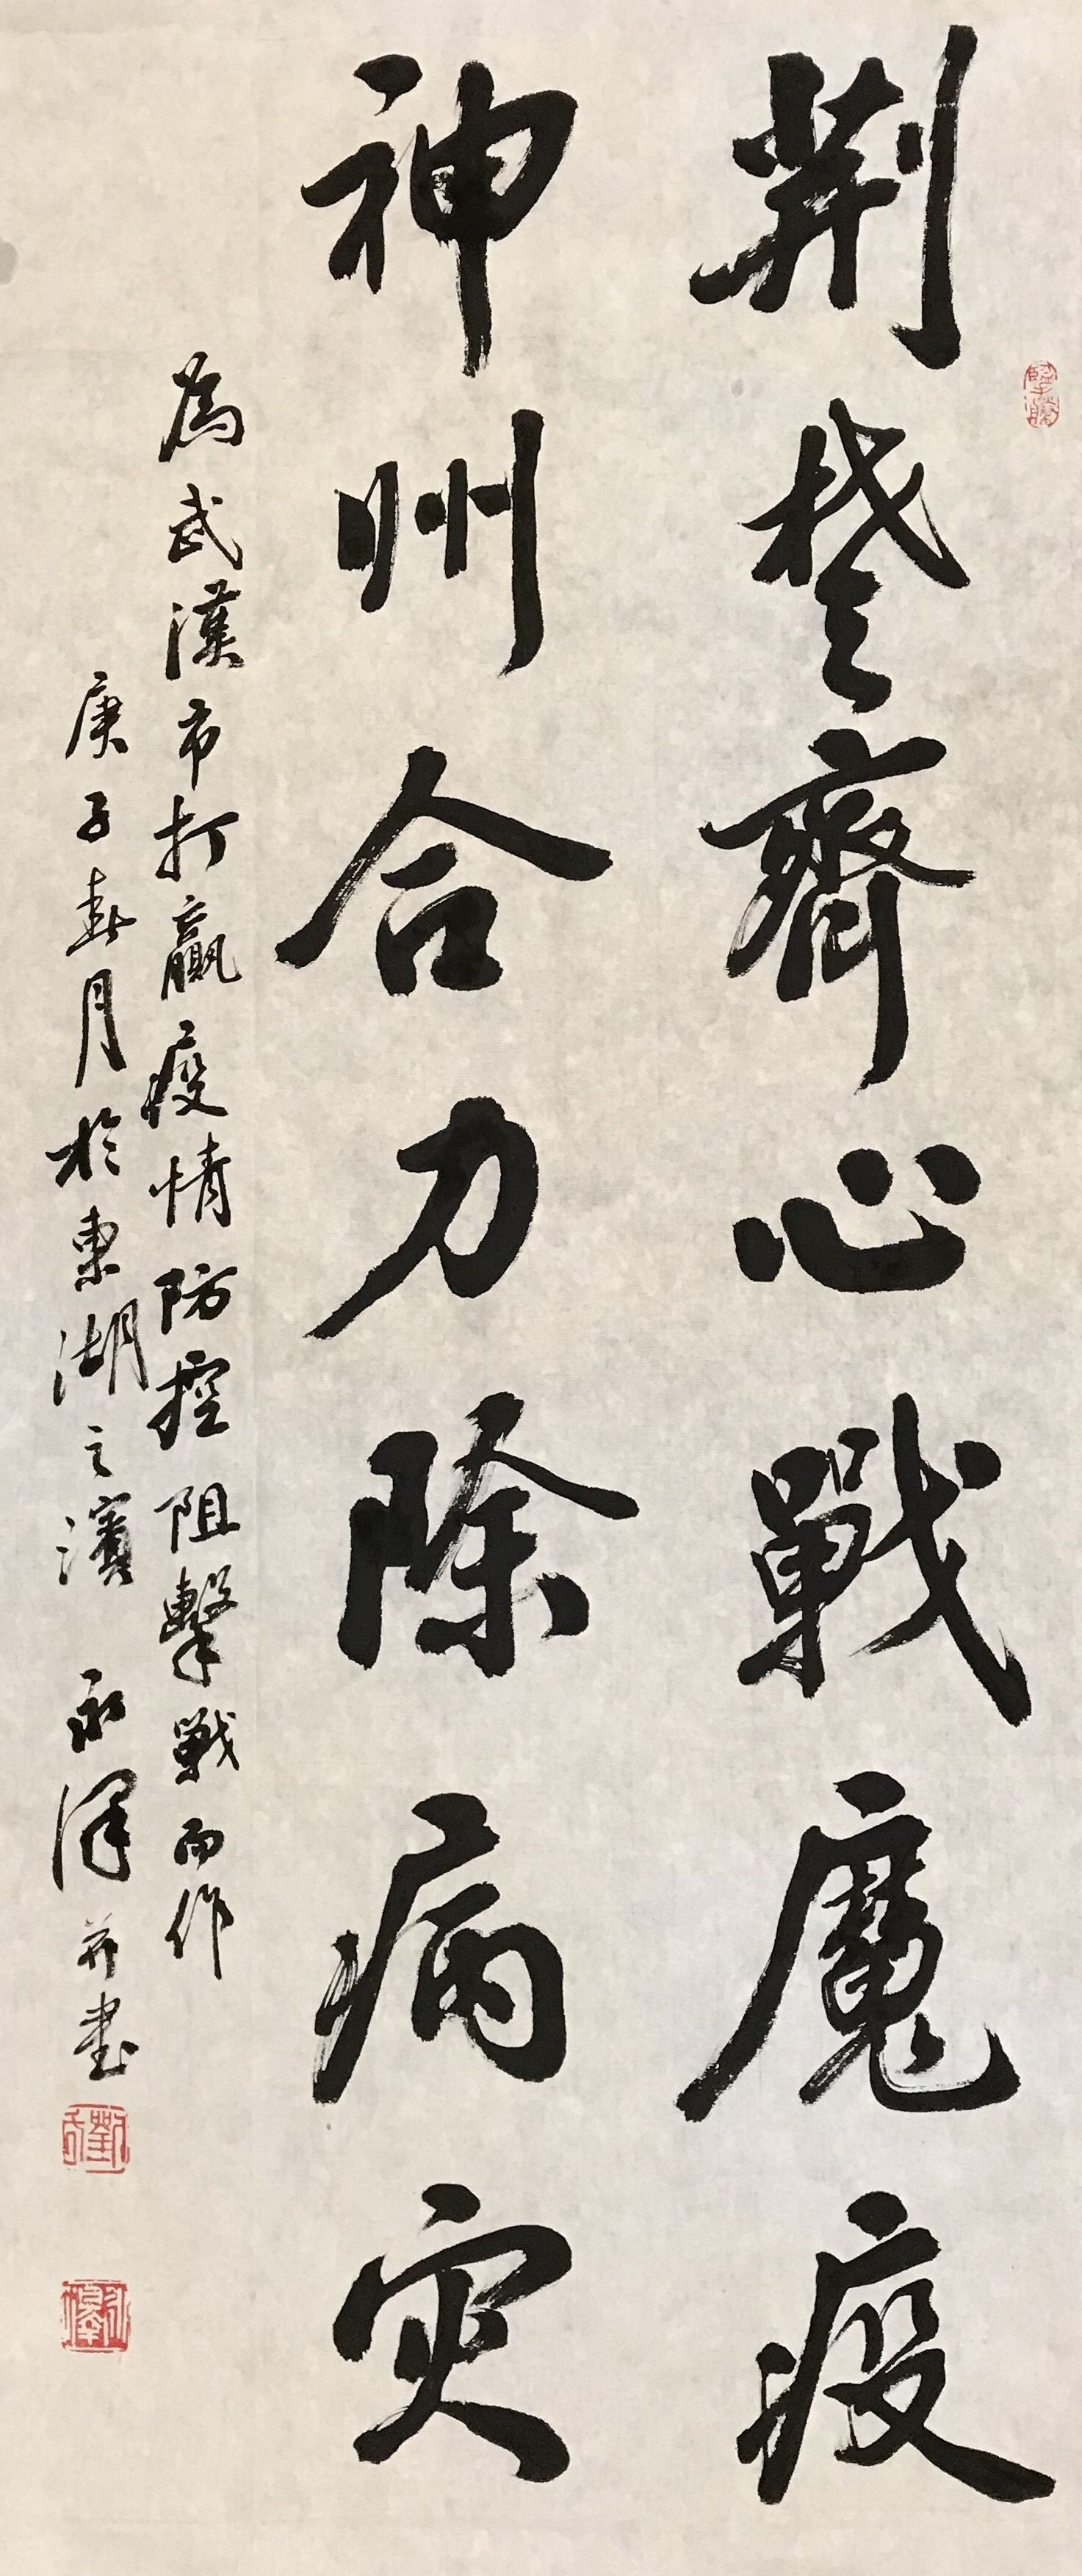 荆楚齊心戰魔疫
神州合力除病灾
為武漢市打贏疫情防控阻擊戰而作
庚子春月於東湖之濱 永澤并書